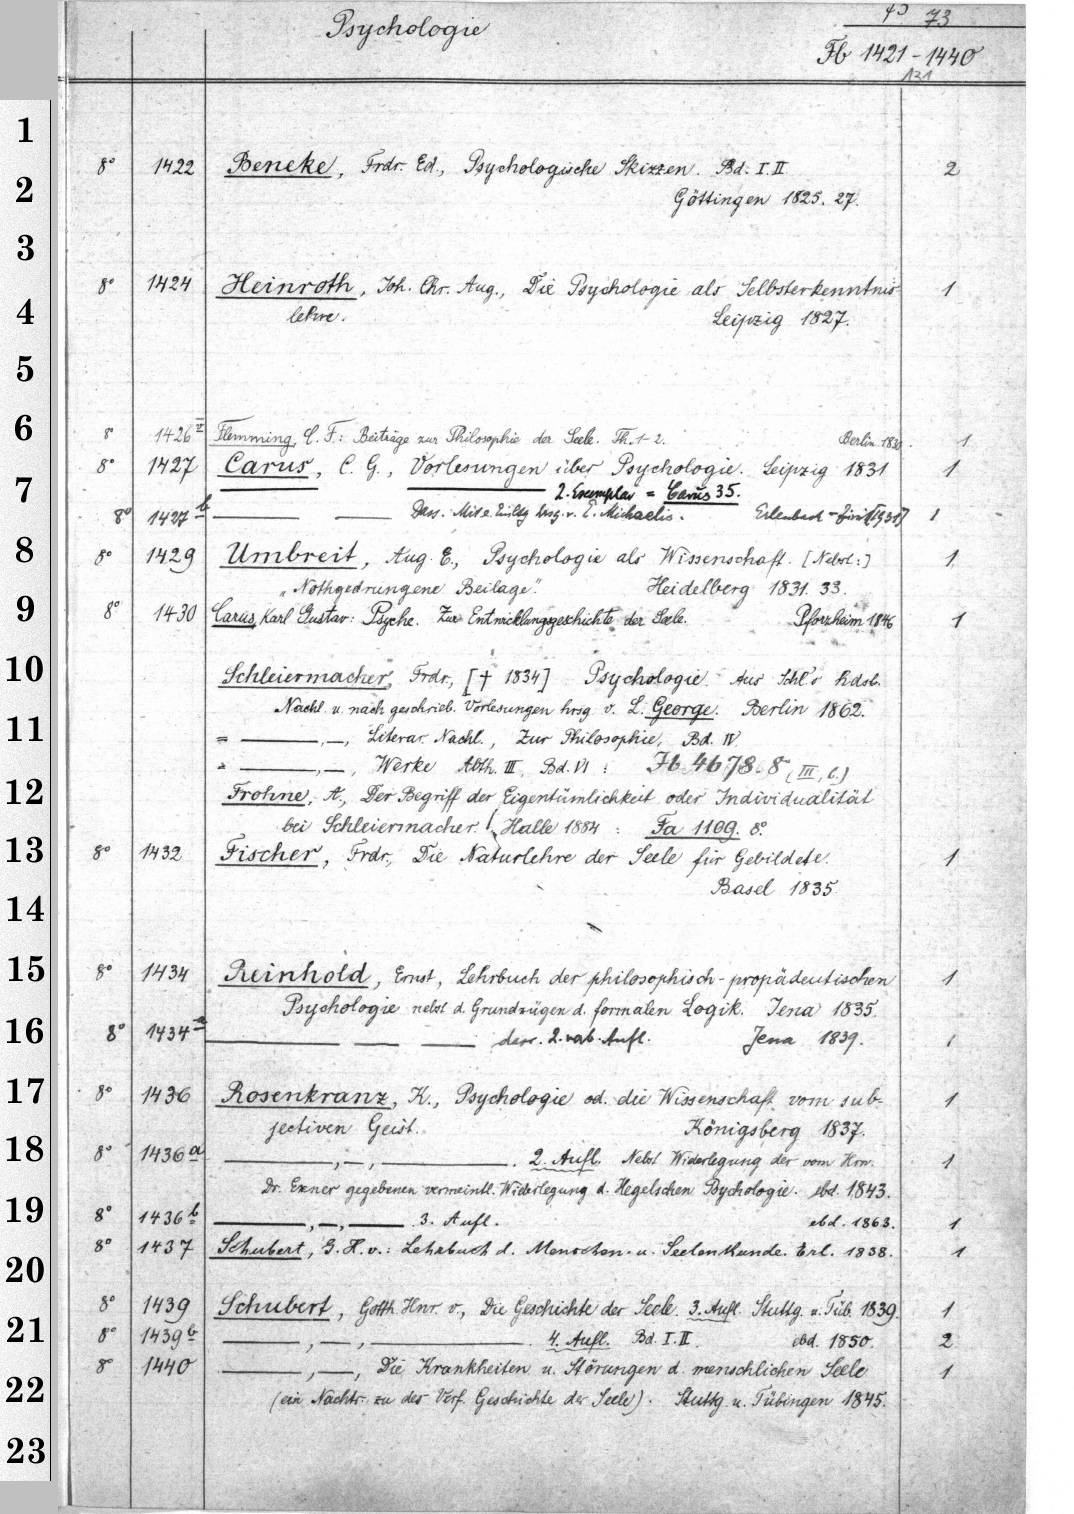 Psychologie 73
Fb 1421-1440
131
1
8° 1422 Beneke, Frdr. Ed., Psychologische Skizzen. Bd. I. II 2
2
Göttingen 1825. 27.
3
8° 1424 Heinroth, Joh. Chr. Aug., Die Psychologie als Selbsterkenntnis- 1
4
lehre. Leipzig 1827.
5
6
8° 1426 Flemming, C. F.: Beiträge zur Philosophie der Seele. Th. 1-2. Berlin 1830. 1
8° 1427 Carus, C. G., Vorlesungen über Psychologie. Leipzig 1831 1
7
2. Exemplar = Carus 35.
8° 1427b — — Dass. Mit e. Einltg hrsg. v. E. Michaelis. Erlenbach-Zürich [1931] 1
8
8° 1429 Umbreit, Aug. E., Psychologie als Wissenschaft. [Nebst:] 1
„Nothgedrungene Beilage“. Heidelberg 1831. 33.
9
8° 1430 Carus, Karl Gustav: Psyche. Zur Entwicklungsgeschichte der Seele. Pforzheim 1846 1
10
Schleiermacher, Frdr., [† 1834] Psychologie. Aus Schl's hdsl.
Nachl. u. nach geschrieb. Vorlesungen hrsg. v. L. George. Berlin 1862.
11
= —,—, Literar. Nachl., Zur Philosophie, Bd. IV
= —,—, Werke Abth. III, Bd. VI : Fb 4678. 8° (III, 6.)
12
Frohne, A., Der Begriff der Eigentümlichkeit oder Individualität
bei Schleiermacher. Halle 1884 : Fa 1109. 8°.
13
8° 1432 Fischer, Frdr., Die Naturlehre der Seele für Gebildete. 1
Basel 1835.
14
15
8° 1434 Reinhold, Ernst, Lehrbuch der philosophisch-propädeutischen 1
Psychologie nebst d. Grundzügen d. formalen Logik. Jena 1835.
16
8° 1434a — — — dass. 2. vb. Aufl. Jena 1839. 1
17
8° 1436 Rosenkranz, K., Psychologie od. die Wissenschaft vom sub- 1
jectiven Geist. Königsberg 1837.
18
8° 1436a —,—,—. 2. Aufl. Nebst Widerlegung der vom Hrn. 1
Dr. Exner gegebenen vermeintl. Widerlegung d. Hegelschen Psychologie. ebd. 1843.
19
8° 1436b —,—,— 3. Aufl. ebd. 1863. 1
8° 1437 Schubert, G. H. v.: Lehrbuch d. Menschen- u. Seelenkunde. Erl. 1838. 1
20
8° 1439 Schubert, Gotth. Hnr. v., Die Geschichte der Seele. 3. Aufl. Stuttg. u. Tüb. 1839. 1
21
8° 1439b —,—,—. 4. Aufl. Bd. I. II. ebd. 1850. 2
8° 1440 —,—, Die Krankheiten u. Störungen d. menschlichen Seele 1
22
(ein Nachtr. zu des Verf. Geschichte der Seele). Stuttg. u. Tübingen 1845.
23